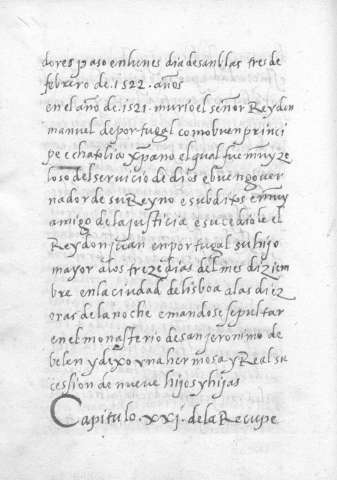 dores paso en lunes dia de san blas tres de
febrero de .1522. años
en el año de .1521. murio el señor Rey don
manual de portugal como buen princi
pe e chatolico xpano el qual fue muy ze
loso del servicio de dios e buen gover
nador de su Reyno e subditos e muy
amigo de la justicia e sucediole el
Rey don juan en portugal su hijo
mayor a los treze dias del mes diziem
bre en la ciudad de lisboa a las diez
oras de la noche e mandose sepultar
en el monasterio de san jeronimo de
belen y dexo vna hermosa y Real su
cession de nueve hijos y hijas
Capitulo .xxi. de la Recupe